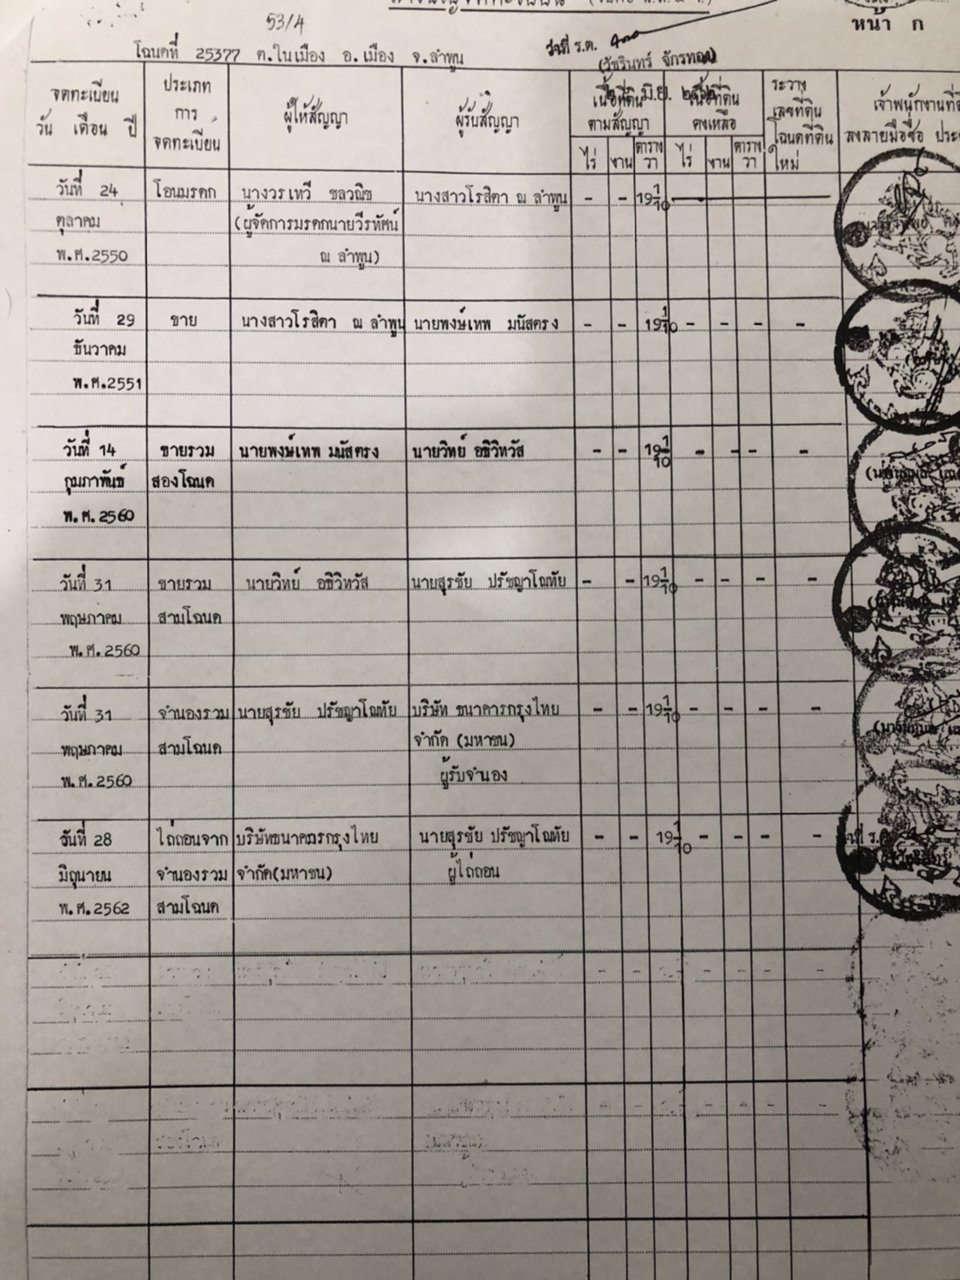 53/4
หน้า ก
โฉนดที่ 25377 ต.ในเมือง อ.เมือง จ.ลำพูน
(วัชรินทร์ จักรทอง)
จดทะเบียน
วัน เดือน ปี
ประเภท
การ
จดทะเบียน
ผู้ให้สัญญา
ผู้รับสัญญา
เนื้อที่ดิน
ตามสัญญา
ไร่ งาน ตารางวา
เนื้อที่ดิน
คงเหลือ
ไร่ งาน ตารางวา
ระวาง
เลขที่ดิน
โฉนดที่ดิน
ใหม่
เจ้าพนักงานที่
ลงลายมือชื่อ
วันที่ 24 โอนมรดก นางวรเทวี ชลวณิช นางสาวโรสิตา ณ ลำพูน - - 19 1/10
ตุลาคม (ผู้จัดการมรดกนายวีรทัศน์
พ.ศ.2550 ณ ลำพูน)
วันที่ 29 ขาย นางสาวโรสิตา ณ ลำพูน นายพงษ์เทพ มนัสตรง - - 19 1/10 - - - -
ธันวาคม
พ.ศ.2551
วันที่ 14 ขายรวม นายพงษ์เทพ มนัสตรง นายวิทย์ อธิวิทวัส - - 19 1/10 - - - -
กุมภาพันธ์ สองโฉนด
พ.ศ.2560
วันที่ 31 ขายรวม นายวิทย์ อธิวิทวัส นายสุรชัย ปรัชญาโณทัย - - 19 1/10 - - - -
พฤษภาคม สามโฉนด
พ.ศ.2560
วันที่ 31 จำนองรวม นายสุรชัย ปรัชญาโณทัย บริษัท ธนาคารกรุงไทย - - 19 1/10 - - - -
พฤษภาคม สามโฉนด จำกัด (มหาชน)
พ.ศ.2560 ผู้รับจำนอง
วันที่ 28 ไถ่ถอนจาก บริษัทธนาคารกรุงไทย นายสุรชัย ปรัชญาโณทัย - - 19 1/10 - - - -
มิถุนายน จำนองรวม จำกัด(มหาชน) ผู้ไถ่ถอน
พ.ศ.2562 สามโฉนด